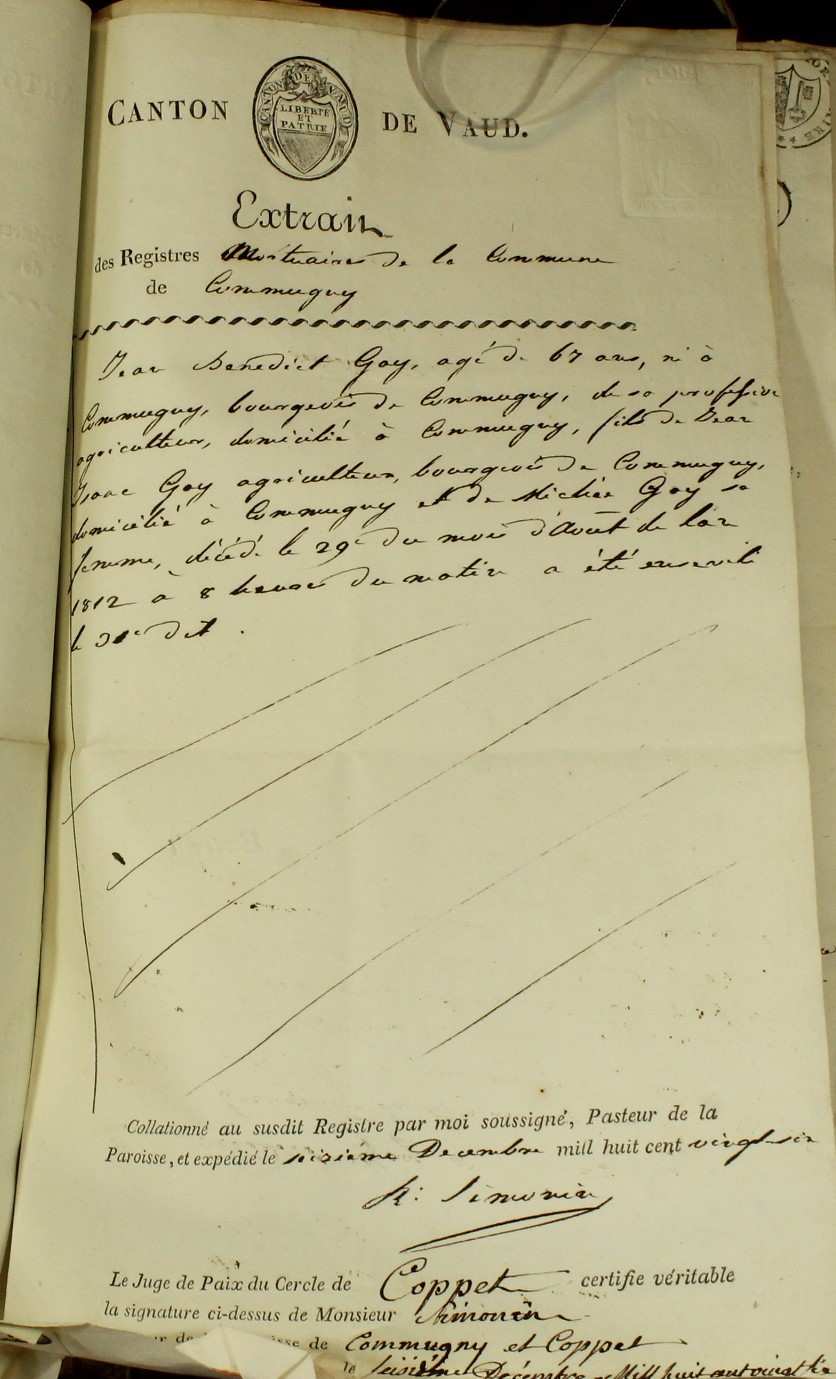 CANTON DE VAUD.
CANTON DE VAUD
LIBERTÉ
ET
PATRIE
Extrait
des Registres Mortuaires de la Commune
de Commugny
Jean Benedict Goy, agé de 67 ans, né à
Commugny, bourgeois de Commugny, de sa profession
agriculteur, domicilié à Commugny, fils de Jean
Isaac Goy agriculteur, bourgeois de Commugny,
domicilié à Commugny et de Michée Goy sa
femme, décédé le 29e du mois d'Août de l'an
1812 à 8 heures du matin a été enseveli
le 31e dit.
Collationné au susdit Registre par moi soussigné, Pasteur de la
Paroisse, et expédié le seizième Decembre mill huit cent vingt-six
Simonin
Le Juge de Paix du Cercle de Coppet certifie véritable
la signature ci-dessus de Monsieur Simonin
de Commugny et Coppet
le seizième Décembre Mill huit cent vingt six